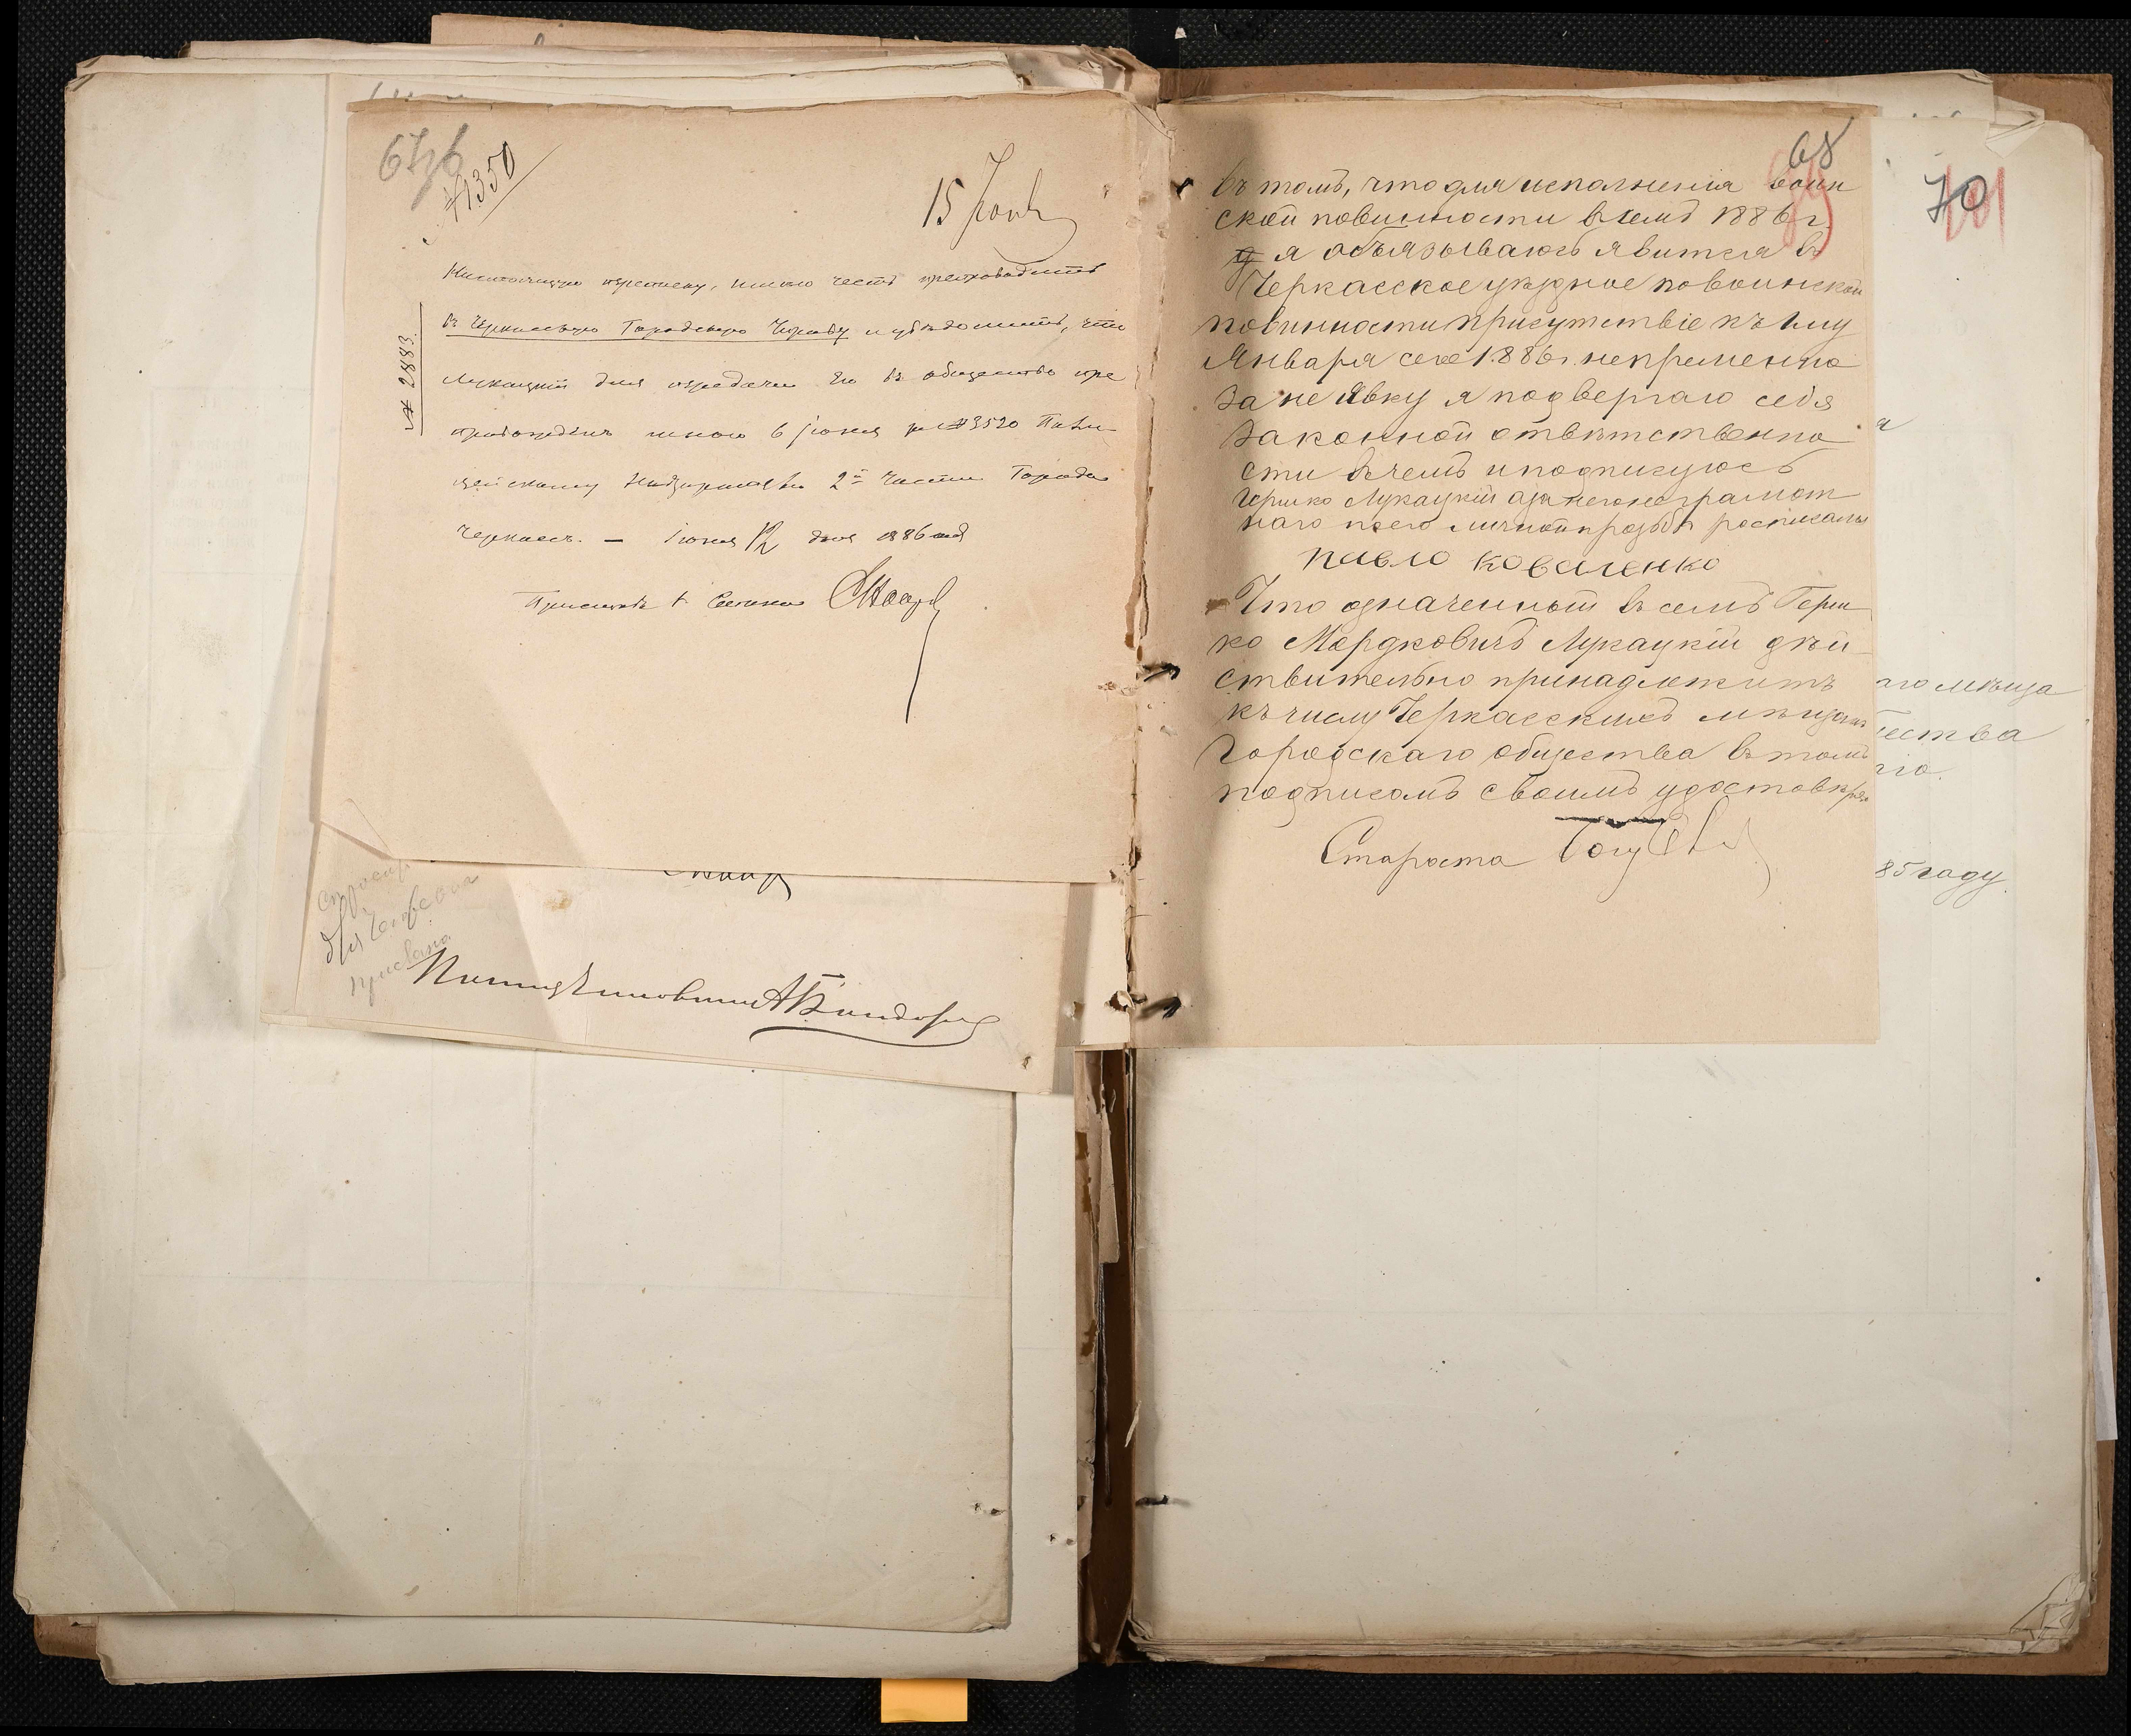 67об
№ 1350
15 Іюня
№ 2883.
Настоящую переписку, имею честь препроводить
въ Черкасскую Городскую Управу и увѣдомить, что
Лукацкій для передачи его въ общество пре
провожденъ мною 6 Іюня за № 3520 Поли
цейскому Надзирателю 2й части Города
Черкассъ. — Іюня 12 дня 1886 года
Приставъ 1 Стана
68
въ томъ, что для исполнения воин
ской повинности в семъ 1886 г.
я обьязываюсь явится въ
Черкасское уѣздное по воинской
повинности присутствіе къ
Января сего 1886 г. непременно
За не явку я подвергаю себя
Законной отвѣтственно
сти въ чемъ и подписуюсь
Гершко Лукацкій а за него неграмот
наго по его личной прозьбѣ росписался
Павло Коваленко
Что означенный въ семъ Герш
ко Мордковичъ Лукацкій дѣй
ствительно принадлежитъ
къ числу Черкасскихъ мѣщанъ
Городскаго общества въ томъ
подписомъ своимъ удостовѣряю
Староста
70
101
аго мѣсяца
ества
85 году.